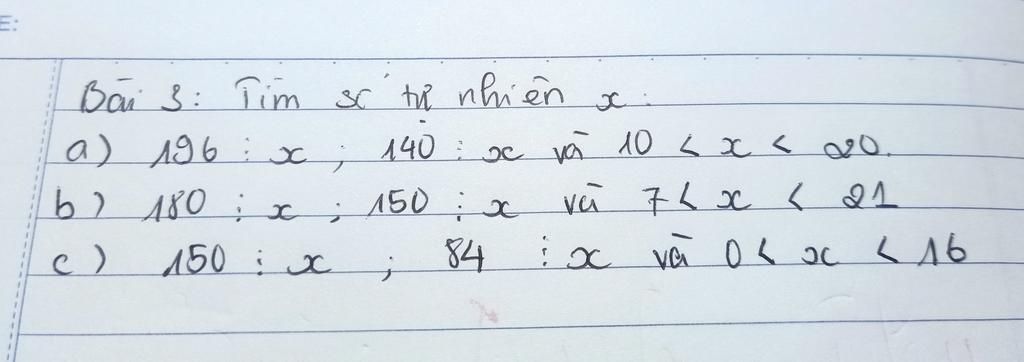 E:
Bài 3: Tìm số tự nhiên x:
a) 196 ⋮ x ; 140 ⋮ x và 10 < x < 20.
b) 180 ⋮ x ; 150 ⋮ x và 7 < x < 21
c) 150 ⋮ x ; 84 ⋮ x và 0 < x < 16